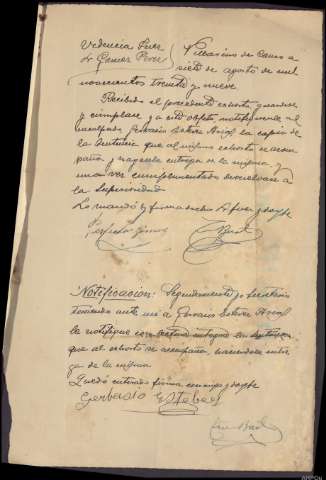 Videncia Juez
Sr Gomez Perez
a
siete de agosto de mil
novecientos treinta y nueve
Recibido el precedente exhorto guardese
y cumplase y a este objeto notifiquese al
inculpado Gervasio Esteve la copia de
la sentencia que al mismo exhorto se acom
paña y hagasele entrega de la misma y
una vez cumplimentado devuelvase a
la Superioridad
Lo mandó y firma dicho Sr Juez doy fe
Notificacion: Seguidamente yo Secretario
teniendo ante mi a Gervasio Esteve
le notifique con lectura integra la
que al exhorto se acompaña, haciendole entre
ga de la misma
Quedó enterado firma conmigo doy fe
Gerbasio Estebe